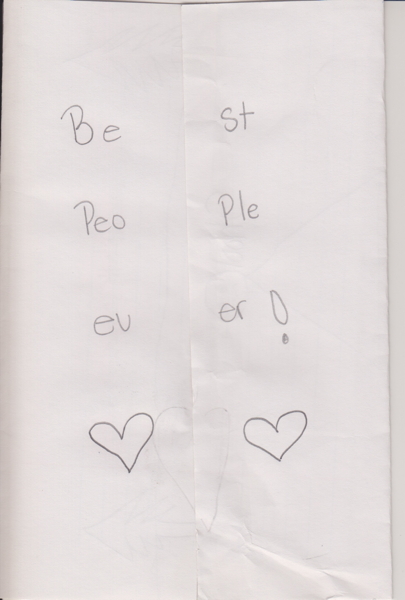 Be st
Peo Ple
ev er!